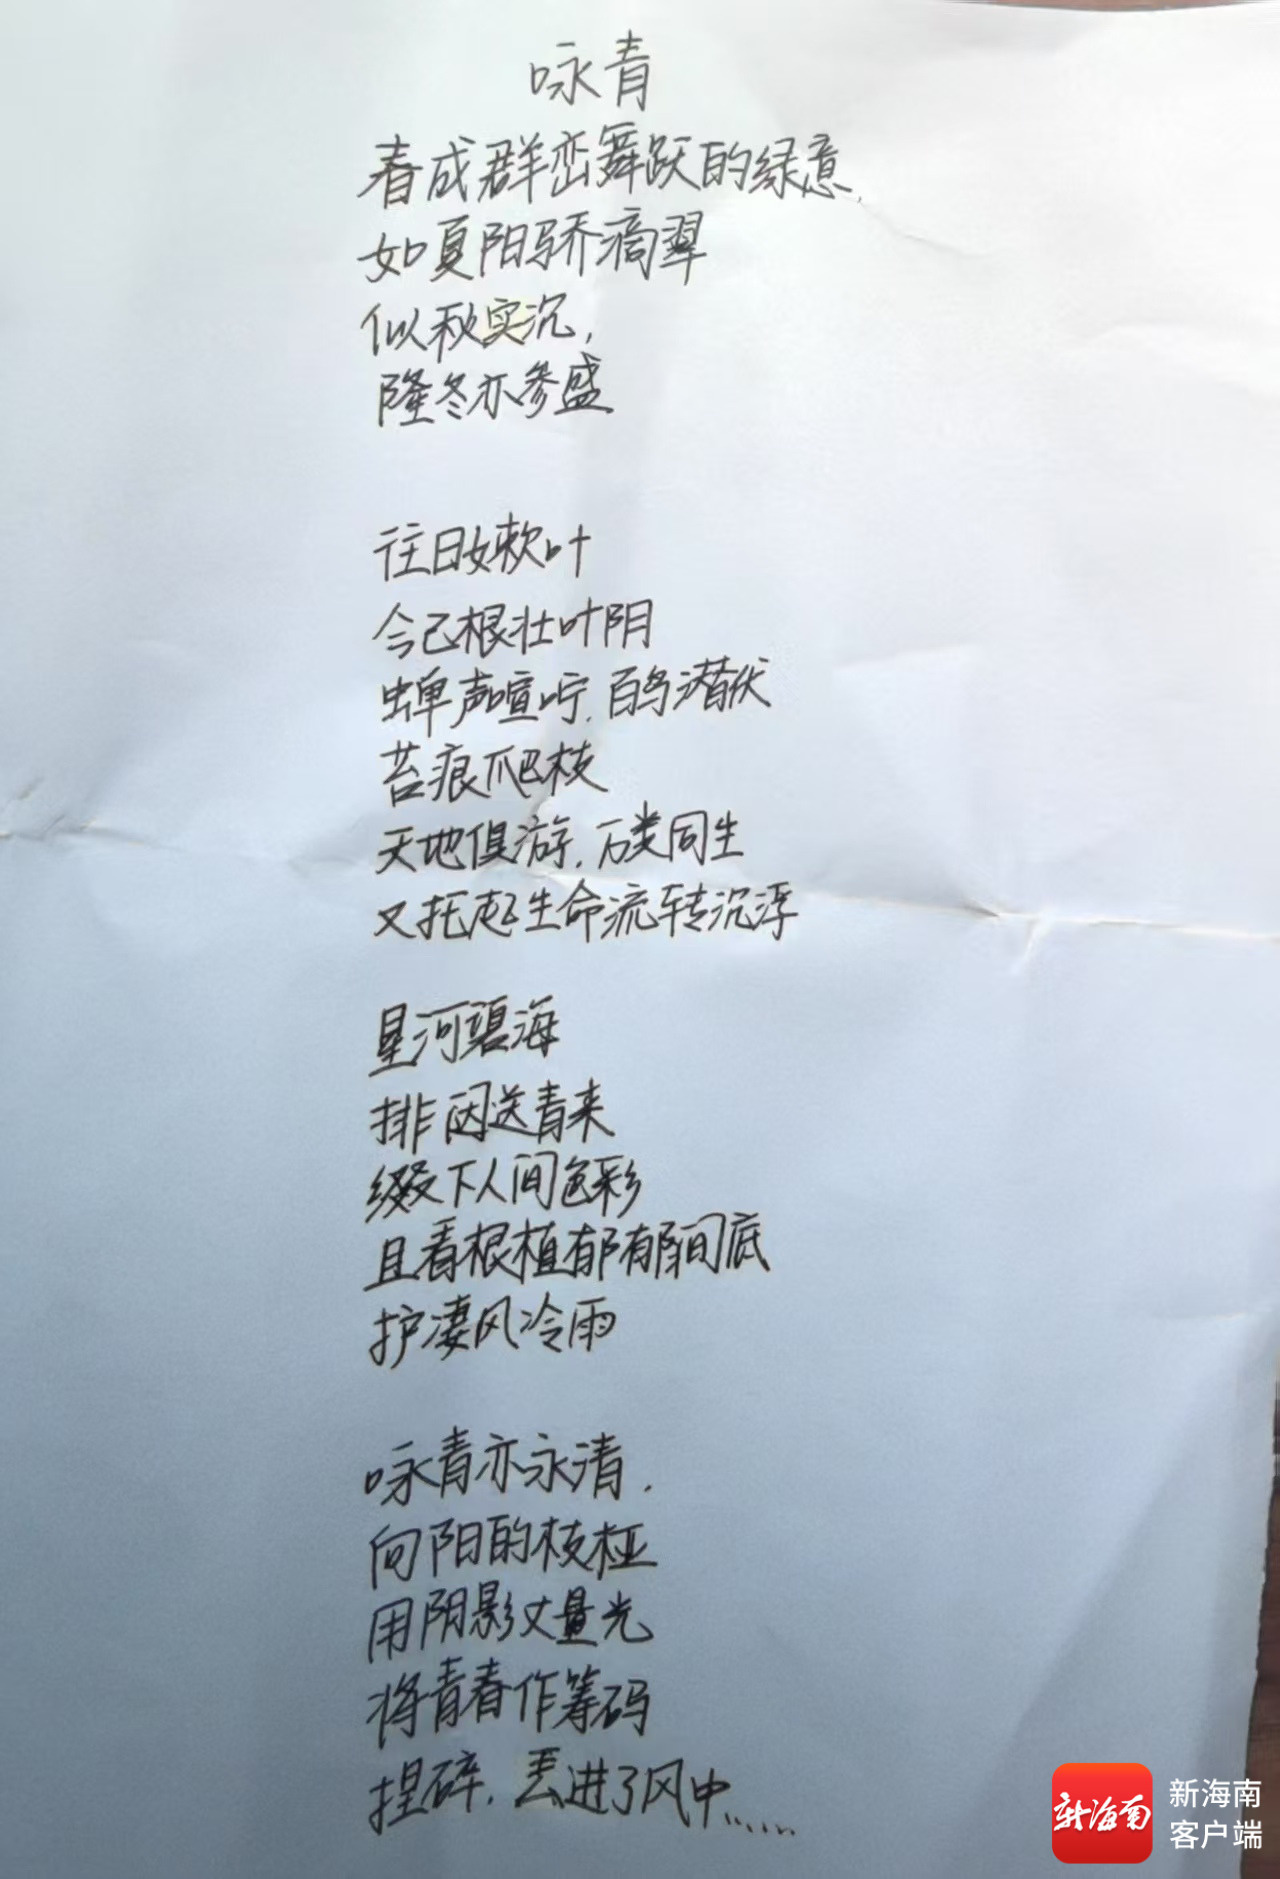 咏青
春成群峦舞跃的绿意,
如夏阳骄滴翠
似秋实沉,
隆冬亦参盛
往日嫩叶
今已根壮叶阴
蝉声喧咛,百鸟潜伏
苔痕爬枝
天地俱游,万类同生
又托起生命流转沉浮
星河碧海
排闼送青来
缀下人间色彩
且看根植郁郁间底
护凄风冷雨
咏青亦永清,
向阳的枝桠
用阴影丈量光
将青春作筹码
捏碎,丢进了风中……
新海南
新海南
客户端